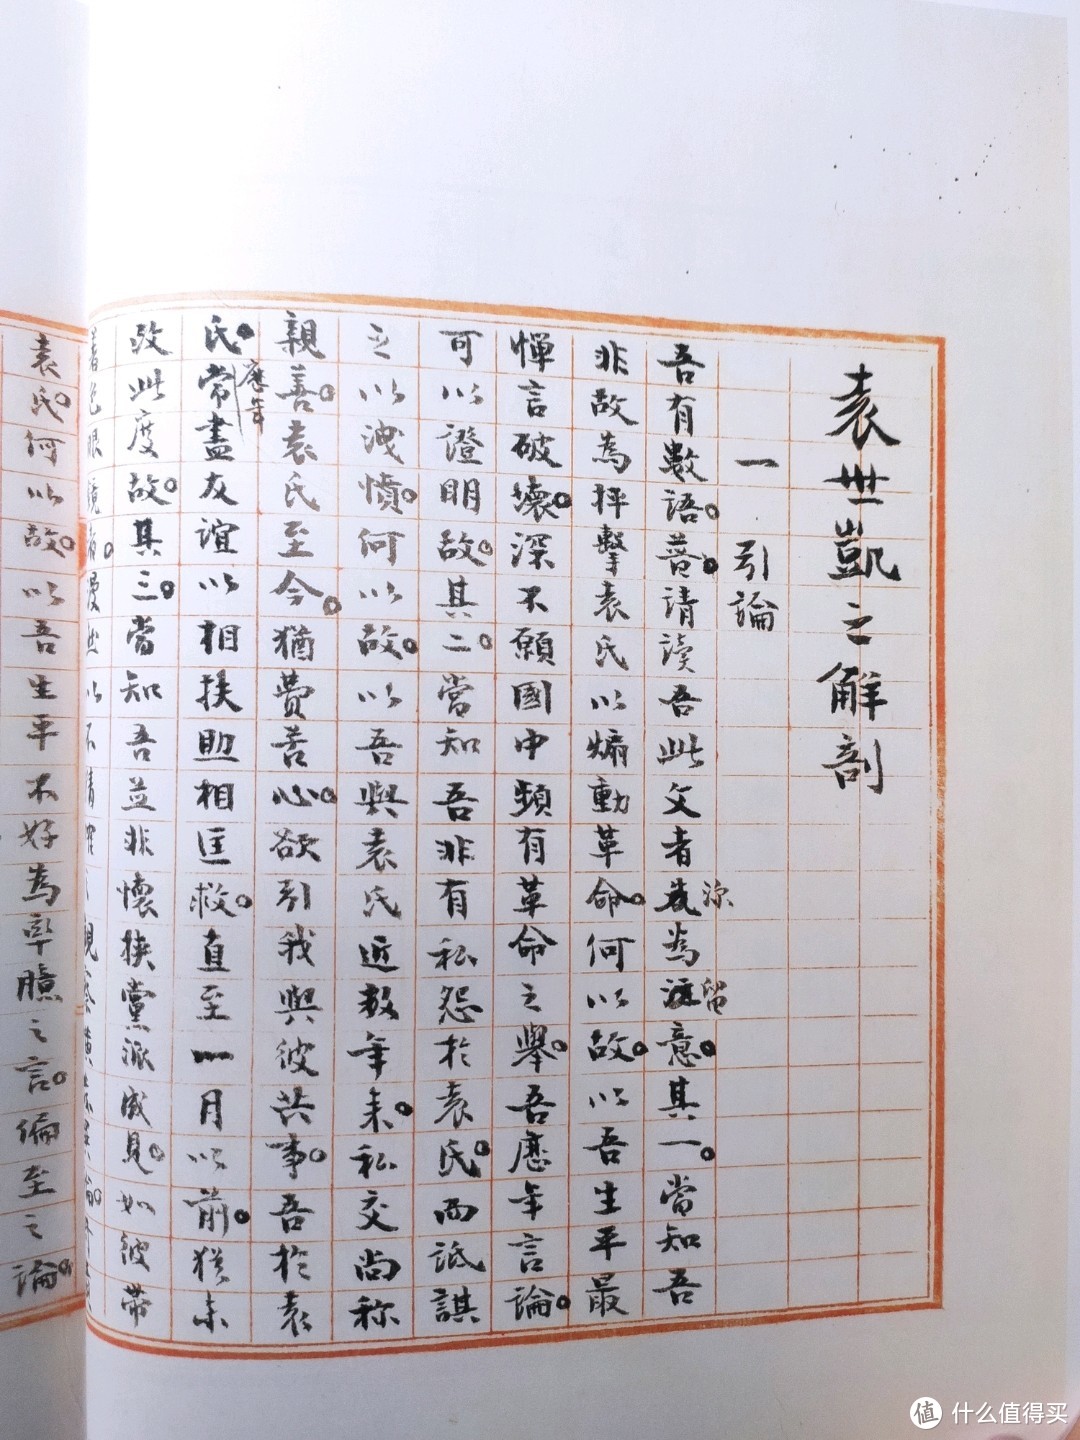 袁世凱之解剖
一 引論
吾有數語。普請讀吾此文者深為留意。其一。當知吾
非故為抨擊袁氏以煽動革命。何以故。以吾生平最
憚言破壞。深不願國中頻有革命之舉。吾歷年言論。
可以證明故。其二。當知吾非有私怨於袁氏。而詆諆
之以洩憤。何以故。以吾與袁氏近数年来。私交尚称
親善。袁氏至今。猶費苦心。欲引我與彼共事。吾於袁
氏。歷年常盡友誼以相扶助相匡救。直至一月以前。猶未
改此度故。其三。當知吾並非懷挾黨派成見。如彼帶
着色眼鏡者。漫然以不
袁氏。何以故。以吾生平不好為率臆之言。偏至之論。
值 什么值得买